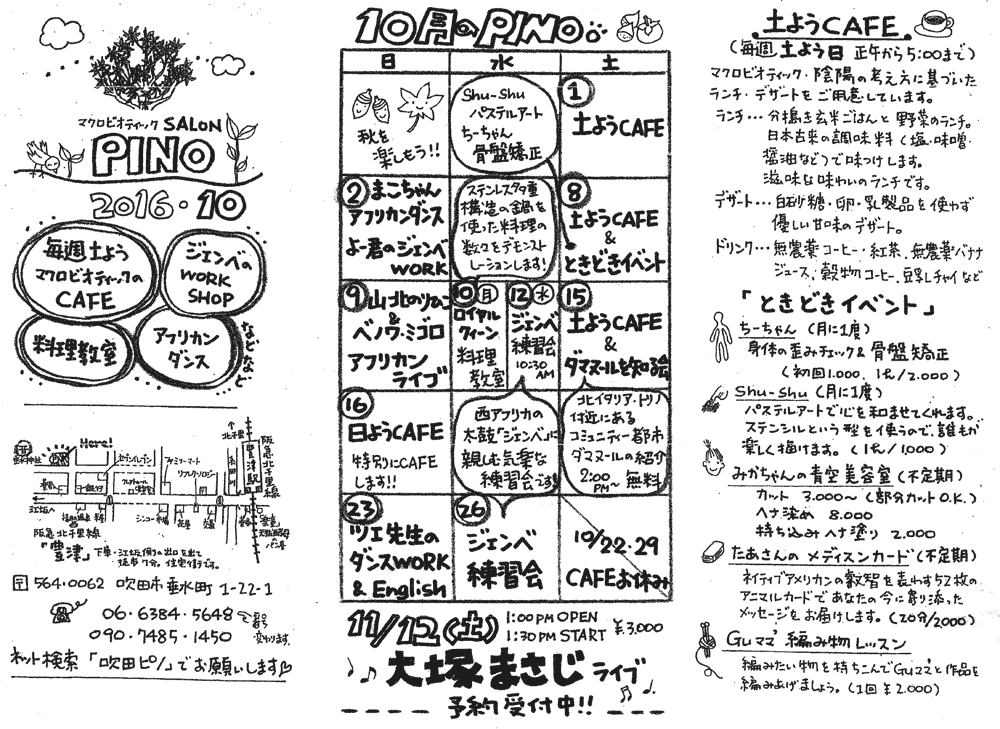 マクロビオティック SALON
PINO
2016・10
毎週土よう
マクロビオティックの
CAFE
ジェンベの
WORK
SHOP
料理教室
アフリカン
ダンス
などなど
Here!
セブンイレブン
ファミリーマート
阪急北千里線
豊津駅
阪急北千里線
「豊津」下車・江坂側の出口を出て
徒歩7分。住宅街です。
〒564-0062 吹田市垂水町 1-22-1
06・6384・5648
090・7485・1450
変わります。
ネット検索「吹田ピノ」でお願いします
10月のPINO
日 水 土
秋を
楽しもう!!
Shu-Shu
パステルアート
ちーちゃん
骨盤矯正
① 土ようCAFE
② まこちゃん
アフリカンダンス
よー君のジェンベ
WORK
ステンレスタタ重
構造の鍋を
使った料理の
数々をデモンスト
レーションします!
⑧ 土ようCAFE
&
ときどきイベント
⑨ 山北のりひこ
&
ベノワ・ミゴロ
アフリカン
ライブ
⑩ ㊊
ロイヤル
クィーン
料理
教室
⑫ ㊌
ジェンベ
練習会
10:30
AM
⑮ 土ようCAFE
&
ダマヌールを知る会
⑯ 日ようCAFE
特別にCAFE
します!!
西アフリカの
太鼓「ジェンベ」に
親しむ気楽な
練習会です
北イタリア・トリノ
付近にある
コミュニティー都市
ダマヌールの紹介
2:00
PM〜 無料
㉓ ツェ先生の
ダンスWORK
& English
㉖ ジェンベ
練習会
10/22・29
CAFEお休み
11/12(土) 1:00PM OPEN
1:30PM START ¥3,000
大塚まさじライブ
予約受付中!!
土ようCAFE
(毎週 土よう日 正午から5:00まで)
マクロビオティック・陰陽の考え方に基づいた
ランチ・デザートをご用意しています。
ランチ… 分搗き玄米ごはんと野菜のランチ。
日本古来の調味料(塩・味噌・
醤油など)で味つけします。
滋味な味わいのランチです。
デザート… 白砂糖・卵・乳製品を使わず
優しい甘味のデザート。
ドリンク… 無農薬コーヒー・紅茶、無農薬バナナ
ジュース、穀物コーヒー、豆乳チャイなど
「ときどきイベント」
ちーちゃん (月に1度)
身体の歪みチェック& 骨盤矯正
(初回1.000、1人/2.000)
Shu-Shu (月に1度)
パステルアートで心を和ませてくれます。
ステンシルという型を使うので、誰もが
楽しく描けます。(1人/1,000)
みかちゃんの青空美容室(不定期)
カット 3.000〜 (部分カットO.K.)
ヘナ染め 8.000
持ち込みヘナ塗り 2.000
たあさんのメディスンカード(不定期)
ネイティブアメリカンの叡智を表わす52枚の
アニマルカードであなたの今に寄り添った
メッセージをお届けします。(20分/2000)
Guママ 編み物レッスン
編みたい物を持ちこんでGuママと作品を
編みあげましょう。(1回¥2.000)